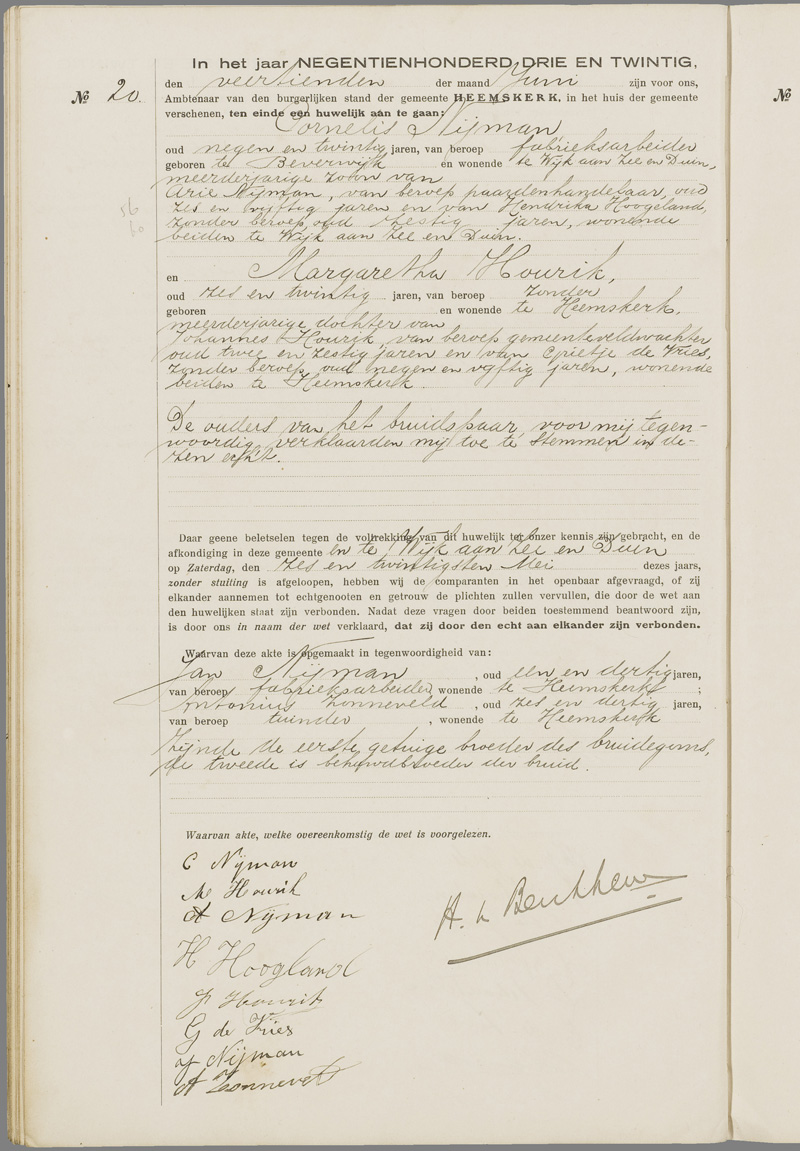 In het jaar NEGENTIENHONDERD DRIE EN TWINTIG,
№ 20.
den veertienden der maand Juni zijn voor ons,
Ambtenaar van den burgerlijken stand der gemeente HEEMSKERK, in het huis der gemeente
verschenen, ten einde een huwelijk aan te gaan:
Cornelis Nijman
oud negen en twintig jaren, van beroep fabrieksarbeider
geboren te Beverwijk en wonende te Wijk aan Zee en Duin,
meerderjarige zoon van
Arie Nijman, van beroep paardenhandelaar, oud
zes en vijftig jaren en van Hendrika Hoogeland,
zonder beroep, oud zestig jaren, wonende
beiden te Wijk aan Zee en Duin.
56
60
en Margaretha Hourik,
oud zes en twintig jaren, van beroep zonder
geboren en wonende te Heemskerk,
meerderjarige dochter van
Johannes Hourik, van beroep gemeenteveldwachter
oud twee en zestig jaren en van Grietje de Vries,
zonder beroep, oud negen en vijftig jaren, wonende
beiden te Heemskerk.
De ouders van het bruidspaar, voor mij tegen-
woordig, verklaarden mij toe te stemmen in de-
zen echt.
Daar geene beletselen tegen de voltrekking van dit huwelijk ter onzer kennis zijn gebracht, en de
afkondiging in deze gemeente en te Wijk aan Zee en Duin
op Zaterdag, den zes en twintigsten Mei dezes jaars,
zonder stuiting is afgeloopen, hebben wij de comparanten in het openbaar afgevraagd, of zij
elkander aannemen tot echtgenooten en getrouw de plichten zullen vervullen, die door de wet aan
den huwelijken staat zijn verbonden. Nadat deze vragen door beiden toestemmend beantwoord zijn,
is door ons in naam der wet verklaard, dat zij door den echt aan elkander zijn verbonden.
Waarvan deze akte is opgemaakt in tegenwoordigheid van:
Jan Nijman, oud een en dertig jaren,
van beroep fabrieksarbeider, wonende te Heemskerk;
Antonius Zonneveld, oud zes en dertig jaren,
van beroep tuinder, wonende te Heemskerk
Zijnde de eerste getuige broeder des bruidegoms,
de tweede is behuwdbroeder der bruid.
Waarvan akte, welke overeenkomstig de wet is voorgelezen.
C Nijman
M Hourik
A Nijman
H Hoogland
J Hourik
G de Vries
J Nijman
A Zonneveld
№